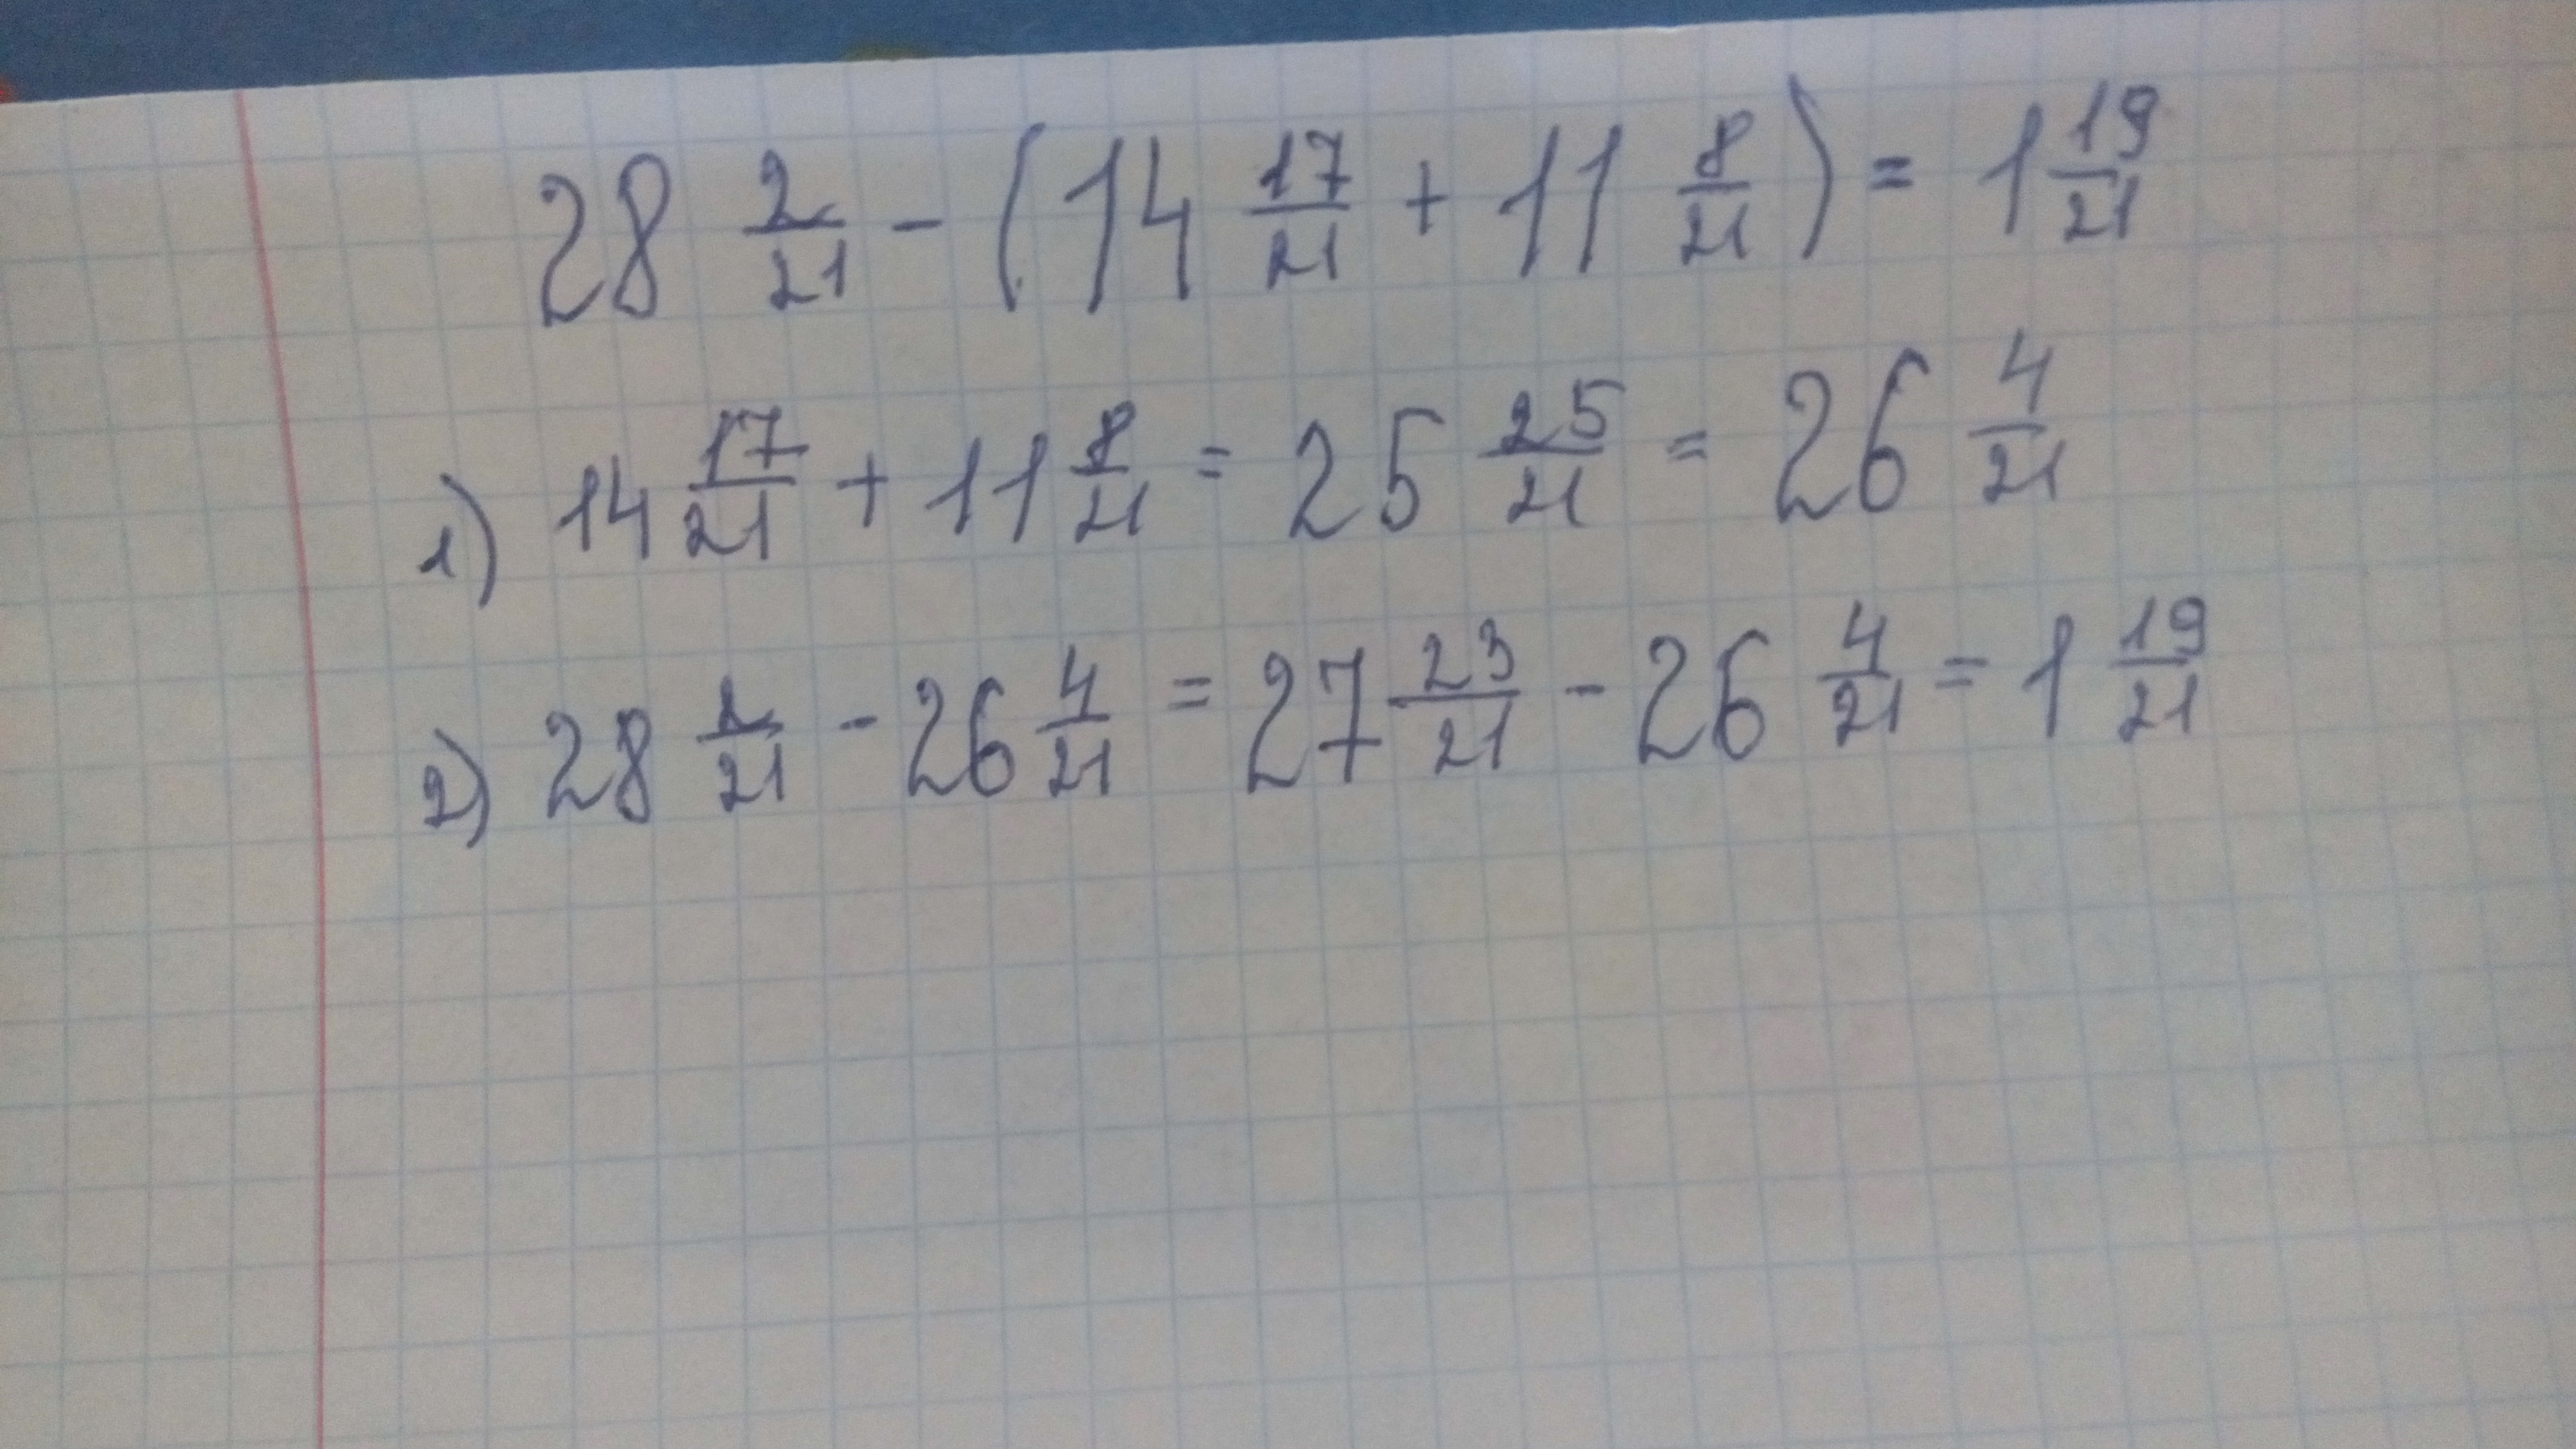 28 2/21 - (14 17/21 + 11 8/21) = 1 19/21
1) 14 17/21 + 11 8/21 = 25 25/21 = 26 4/21
2) 28 2/21 - 26 4/21 = 27 23/21 - 26 4/21 = 1 19/21